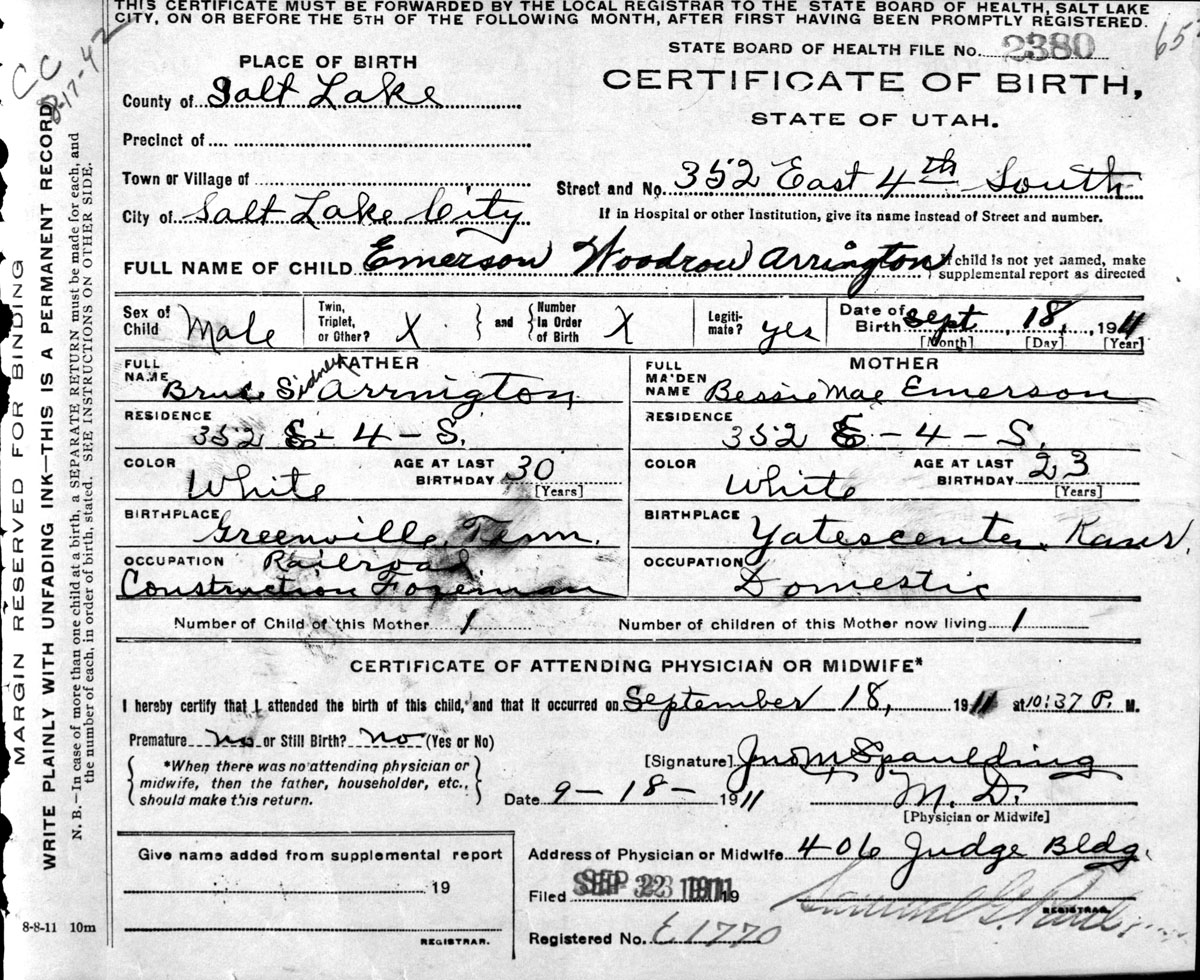 THIS CERTIFICATE MUST BE FORWARDED BY THE LOCAL REGISTRAR TO THE STATE BOARD OF HEALTH, SALT LAKE
CITY, ON OR BEFORE THE 5TH OF THE FOLLOWING MONTH, AFTER FIRST HAVING BEEN PROMPTLY REGISTERED.
CC
8-17-42
MARGIN RESERVED FOR BINDING
WRITE PLAINLY WITH UNFADING INK—THIS IS A PERMANENT RECORD
N. B.—In case of more than one child at a birth, a SEPARATE RETURN must be made for each, and
the number of each, in order of birth, stated. SEE INSTRUCTIONS ON OTHER SIDE.
STATE BOARD OF HEALTH FILE No. 2380
CERTIFICATE OF BIRTH,
STATE OF UTAH.
PLACE OF BIRTH
County of Salt Lake
Precinct of
Town or Village of
Street and No. 352 East 4th South
City of Salt Lake City
If in Hospital or other Institution, give its name instead of Street and number.
FULL NAME OF CHILD Emerson Woodrow Arrington
If child is not yet named, make
supplemental report as directed
Sex of Child Male
Twin, Triplet, or Other? X
and
Number In Order of Birth X
Legiti-mate? yes
Date of Birth Sept, 18, 1911
[Month] [Day] [Year]
FATHER
FULL NAME Bruce Sidney Arrington
RESIDENCE
352 E-4-S.
COLOR White
AGE AT LAST BIRTHDAY 30
[Years]
BIRTHPLACE Greenville, Tenn.
OCCUPATION Railroad
Construction Foreman
MOTHER
FULL MAIDEN NAME Bessie Mae Emerson
RESIDENCE
352 E-4-S.
COLOR White
AGE AT LAST BIRTHDAY 23
[Years]
BIRTHPLACE Yatescenter, Kans.
OCCUPATION Domestic
Number of Child of this Mother 1
Number of children of this Mother now living 1
CERTIFICATE OF ATTENDING PHYSICIAN OR MIDWIFE*
I hereby certify that I attended the birth of this child, and that it occurred on September 18, 1911 at 10:37 P. M.
Premature no or Still Birth? no (Yes or No)
*When there was no attending physician or
midwife, then the father, householder, etc.,
should make this return.
[Signature] Jno M Spaulding
Date 9-18-1911
M. D.
[Physician or Midwife]
Give name added from supplemental report
19
REGISTRAR.
Address of Physician or Midwife 406 Judge Bldg.
Filed SEP 23 1911 19
REGISTRAR.
Registered No. E1770
8-8-11 10m